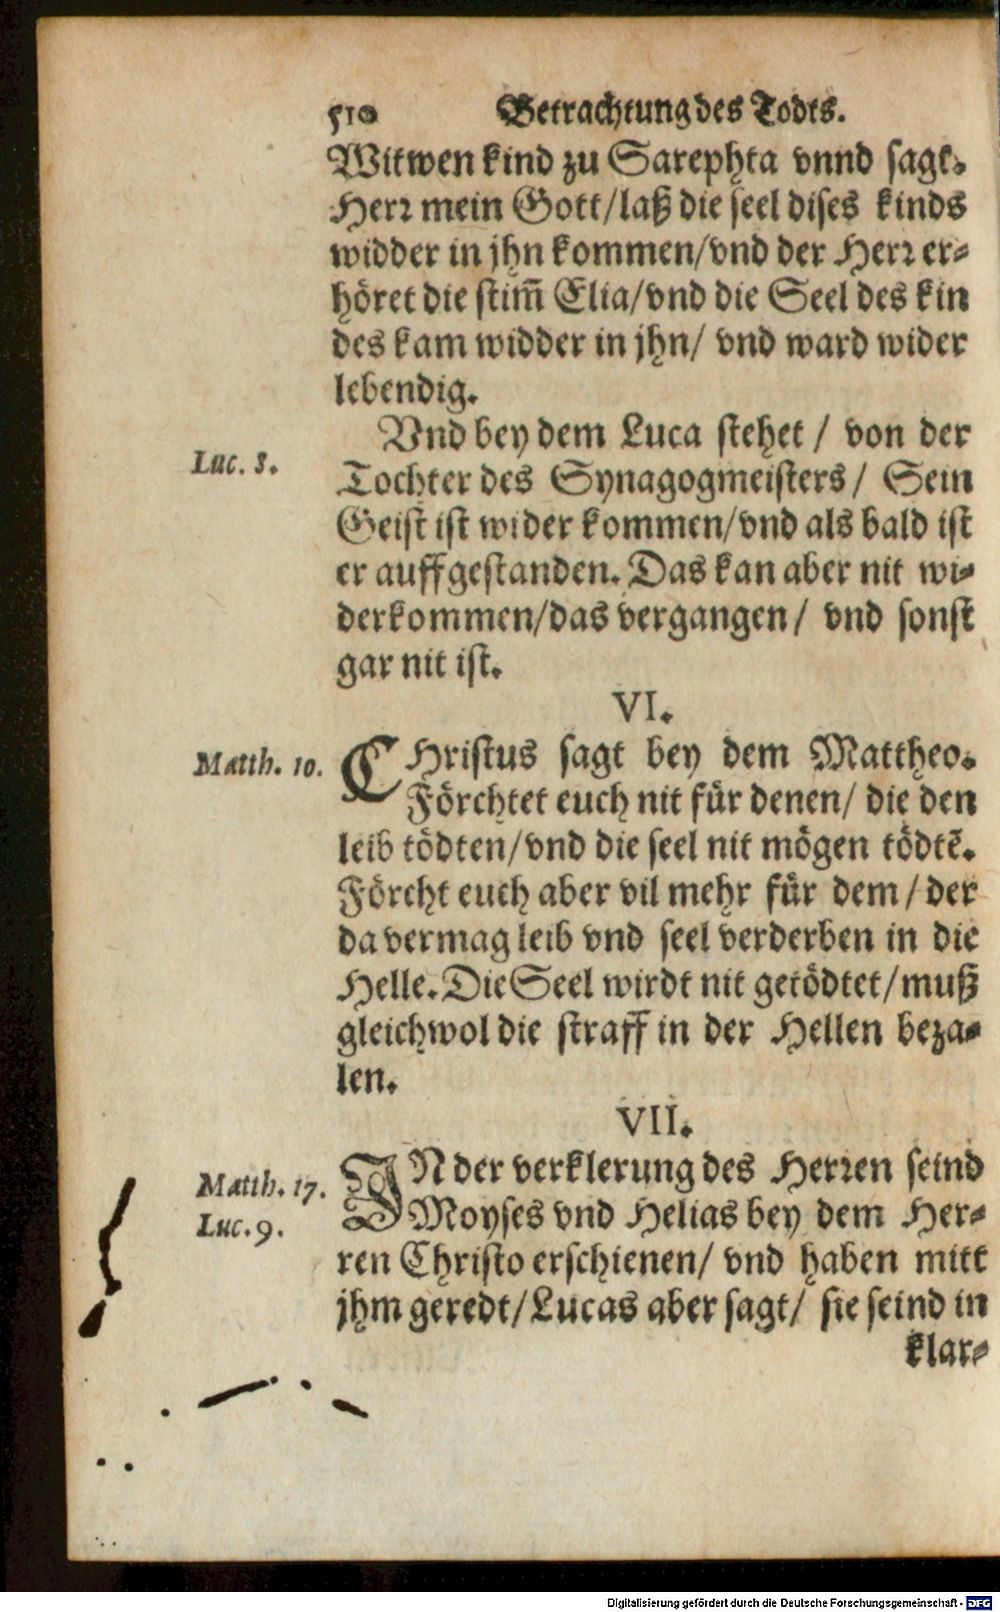 510 Betrachtung des Todts.
Witwen kind zu Sarephta vnnd sagt.
Herr mein Gott/laß die seel dises kinds
widder in jhn kommen/vnd der Herr er-
höret die stim̃ Elia/vnd die Seel des kin
des kam widder in jhn/ vnd ward wider
lebendig.
Vnd bey dem Luca stehet / von der
Luc. 8.
Tochter des Synagogmeisters/ Sein
Geist ist wider kommen/vnd als bald ist
er auffgestanden. Das kan aber nit wi-
derkommen/das vergangen/ vnd sonst
gar nit ist.
VI.
Matth. 10.
CHristus sagt bey dem Mattheo.
Förchtet euch nit für denen/ die den
leib tödten/vnd die seel nit mögen tödtẽ.
Förcht euch aber vil mehr für dem/ der
da vermag leib vnd seel verderben in die
Helle. Die Seel wirdt nit getödtet/muß
gleichwol die straff in der Hellen beza-
len.
VII.
Matth. 17.
Luc. 9.
IN der verklerung des Herren seind
Moyses vnd Helias bey dem Her-
ren Christo erschienen/ vnd haben mitt
jhm geredt/Lucas aber sagt/ sie seind in
klar-
Digitalisierung gefördert durch die Deutsche Forschungsgemeinschaft - DFG